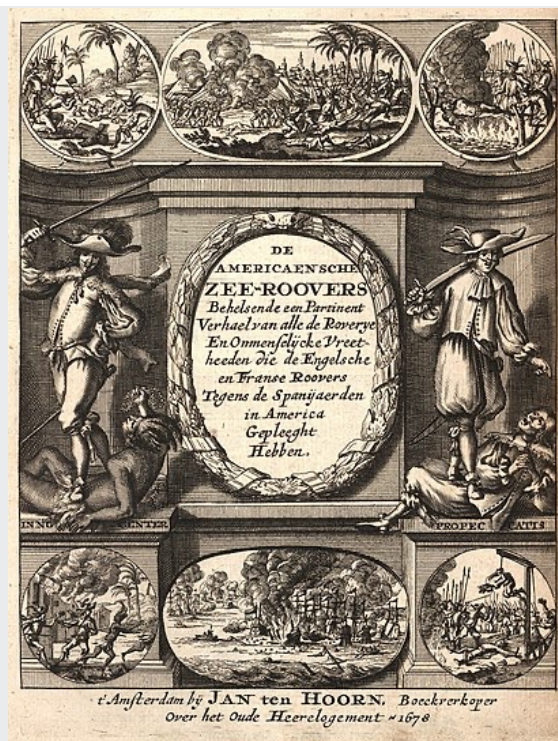 DE
AMERICAENSCHE
ZEE-ROOVERS
Behelsende een Partinent
Verhael van alle de Roverye
En Onmenselijcke Vreet-
heeden die de Engelsche
en Franse Roovers
Tegens de Spanjaerden
in America
Gepleeght
Hebben.
INNO CENTER
PROPEC CATIS
t'Amsterdam bij JAN ten HOORN, Boeckverkoper
Over het Oude Heerelogement ~ 1678